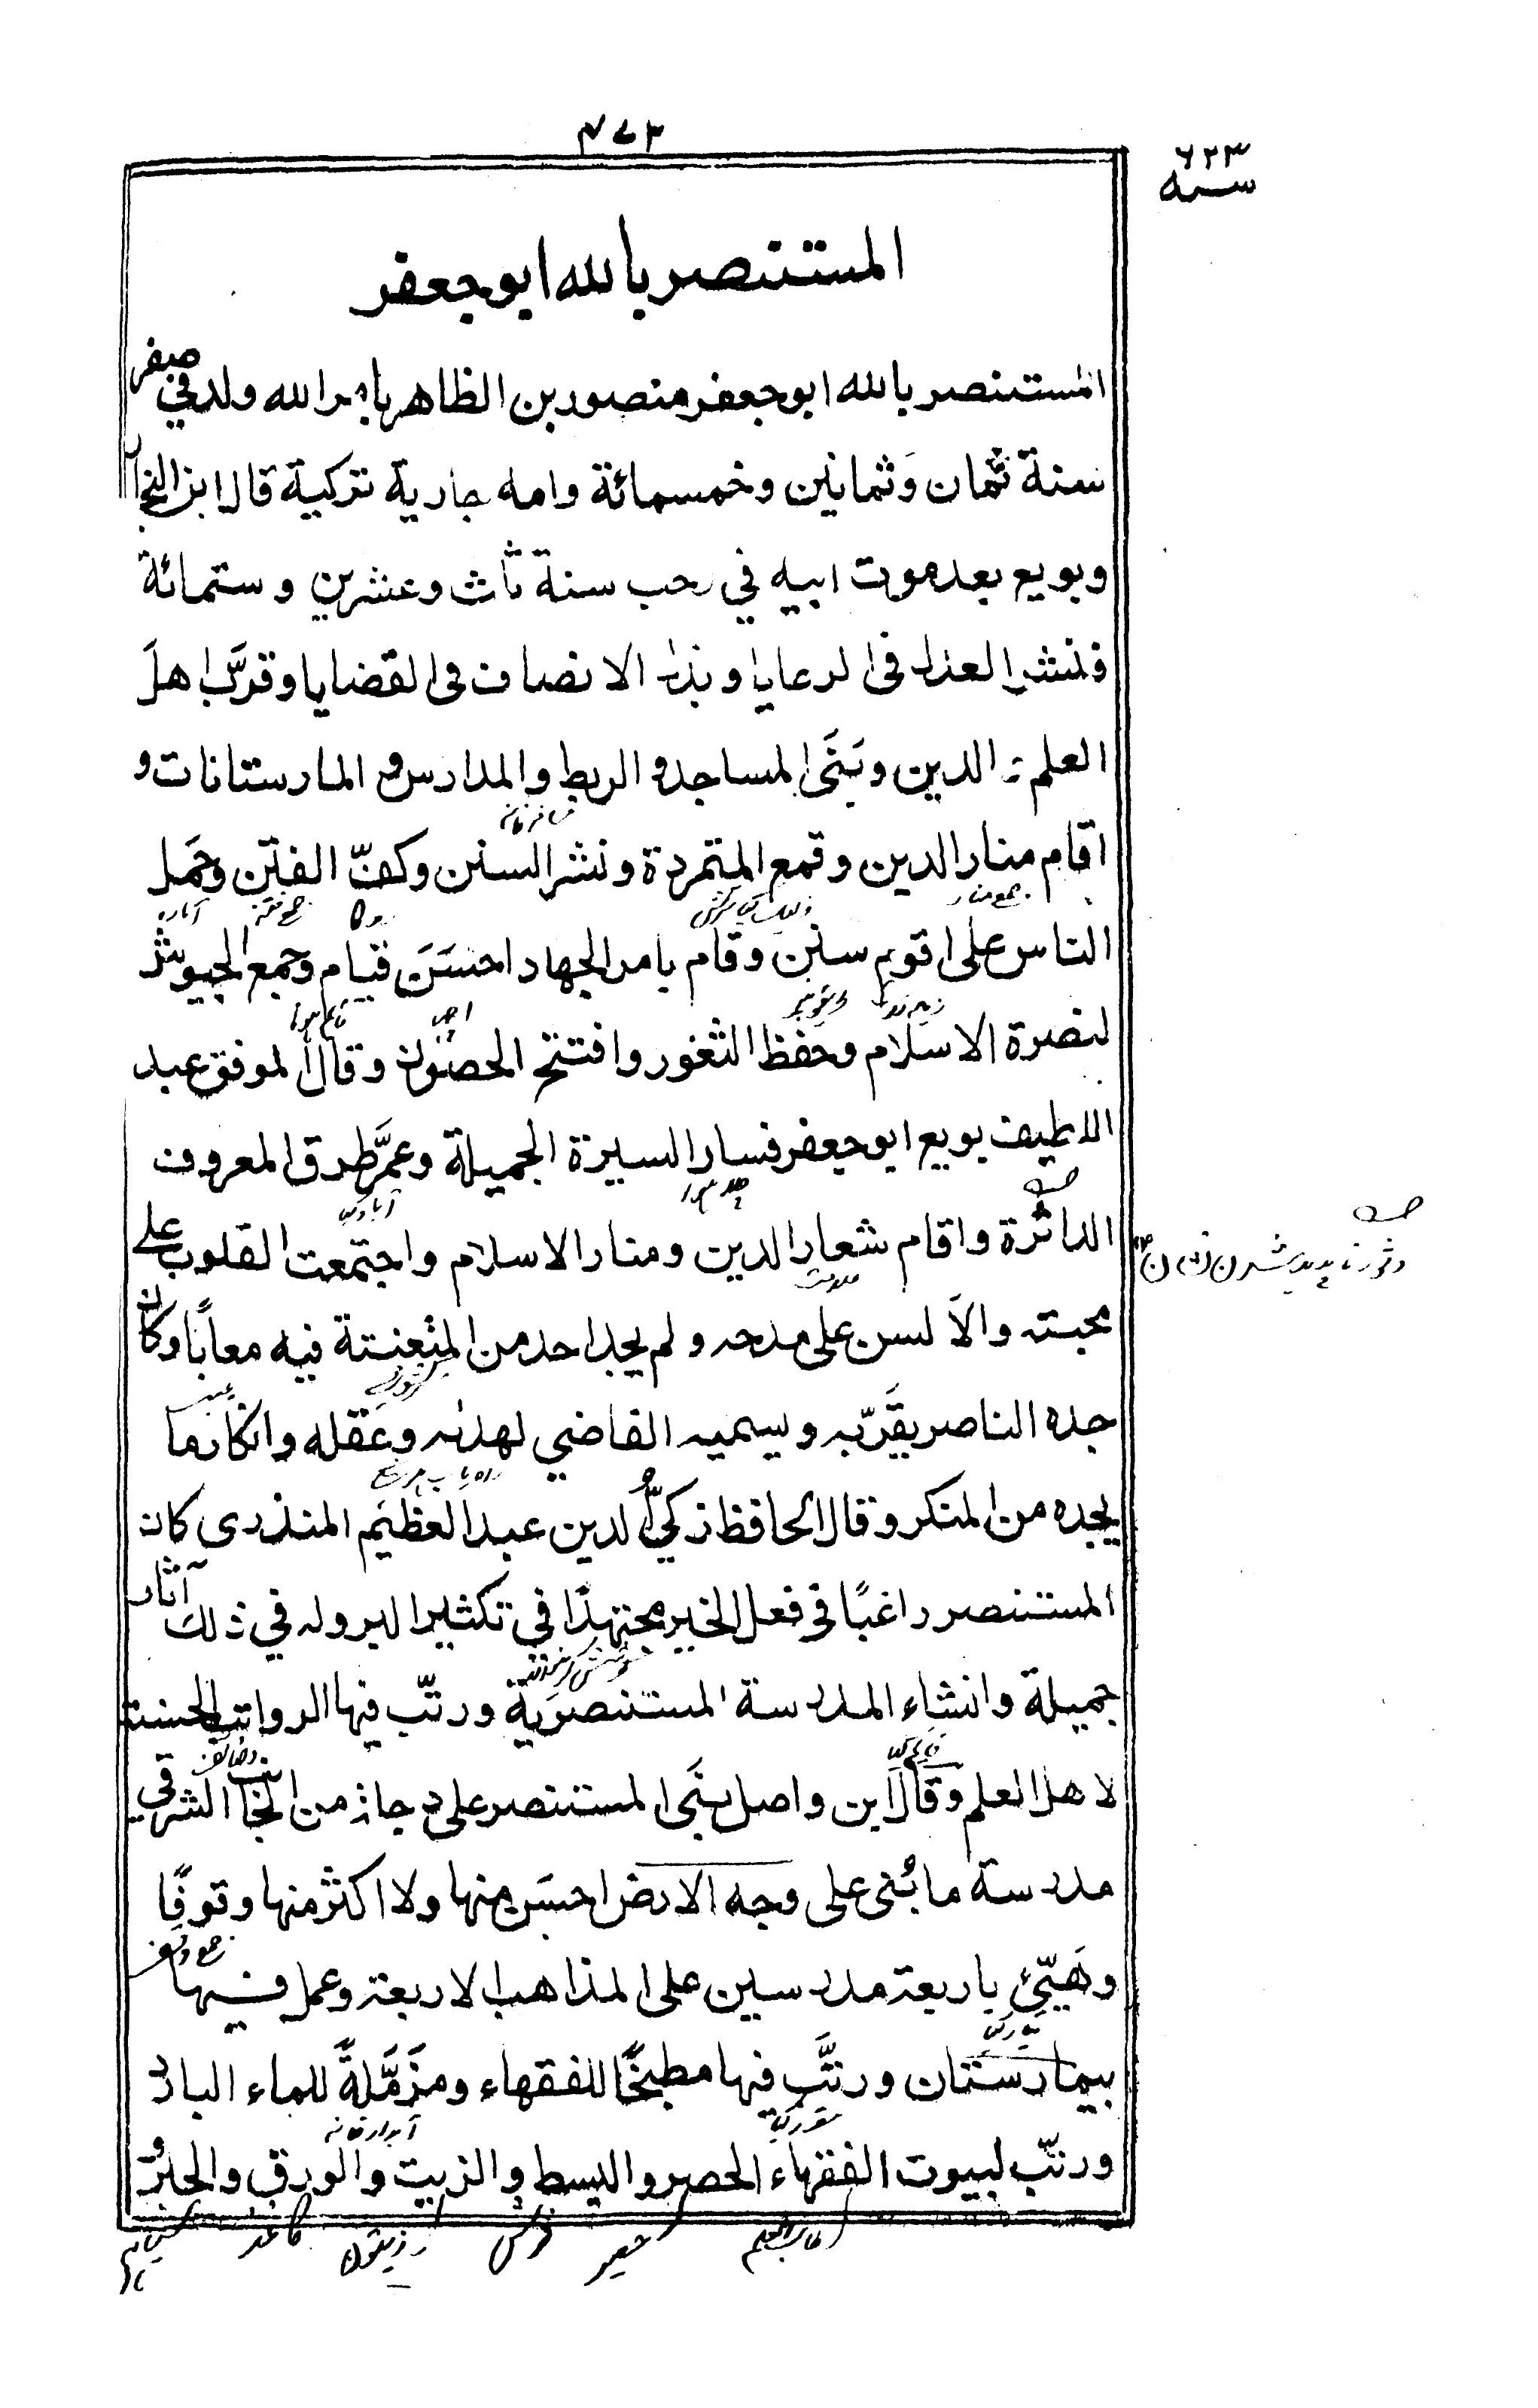 ۴۷۳
۶۲۳
سنه
المستنصر بالله ابو جعفر
المستنصر بالله ابو جعفر منصور بن الظاهر بامر الله ولد في صفر
سنة ثمان وَثمانين وخمسمائة وامه جارية تركية قال ابن النجار
وبويع بعد موت ابيه في رجب سنة ثلث وعشرين وستمائة
فنشر العدل فى الرعايا وبذل الانصاف فى القضايا وقرَّب اهلَ
العلم و الدين وبَنَى المساجد و الربط والمدارس و المارستانات و
مسافر خانه
اقام منار الدين وقمع المتمردة ونشر السنن وكفّ الفتن وحَمل
جمع منار
سرکش
جمع فتنه
آماده
الناس على اقوم سنن وقام بامر الجهاد احسَنَ قيام وجمع الجيوش
قايم هونا
لنصرة الاسلام وحفظ الثغور وافتتح الحصون وقال الموفق عبد
اللطيف بويع ابو جعفر فسار السيرة الجميلة وعمَّر طرق المعروف
آباد کیا
الداثرة واقام شعار الدين ومنار الاسلام واجتمعت القلوب على
علامت
دثور ناپدید شدن نشان
محبته والاَلسن على مدحه ولم يجد احد من المتعنتة فيه معابًا وكان
عیب
جده الناصر يقَرّبه ويسميه القاضي لهداه وعَقله وانكار ما
يجده من المنكر وقال الحافظ زكيُّ الدين عبد العظيم المنذرى كان
المستنصر راغبًا فى فعل الخير مجتهدًا في تكثير البر وله في ذلك آثار
کوشش کرنیوالا
جميلة وانشاء المدرسة المستنصرية ورتّب فيها الرواتب الحسنة
قایم کیا
وظائف
لاهل العلم وقال ابن واصل بنَى المستنصر على دجلة من الجانب الشرقي
مدرسة ما بُنى على وجه الارض احسَن منها ولا اكثر منها وقوفًا
جمع وقف
وهَيّئ باربعة مدرسين على المذاهب الاربعة وعمل فيها
تیار کیا
بيمارستان ورتَّب فيها مطبخًا للفقهاء ومزَمَّلةً للماء البارد
مقرر کیا
آبدار خانه
ورتّب لبيوت الفقهاء الحصر والبسط والزيت والورق والحبرَ
حصیر
فرش
زیتون
کاغذ